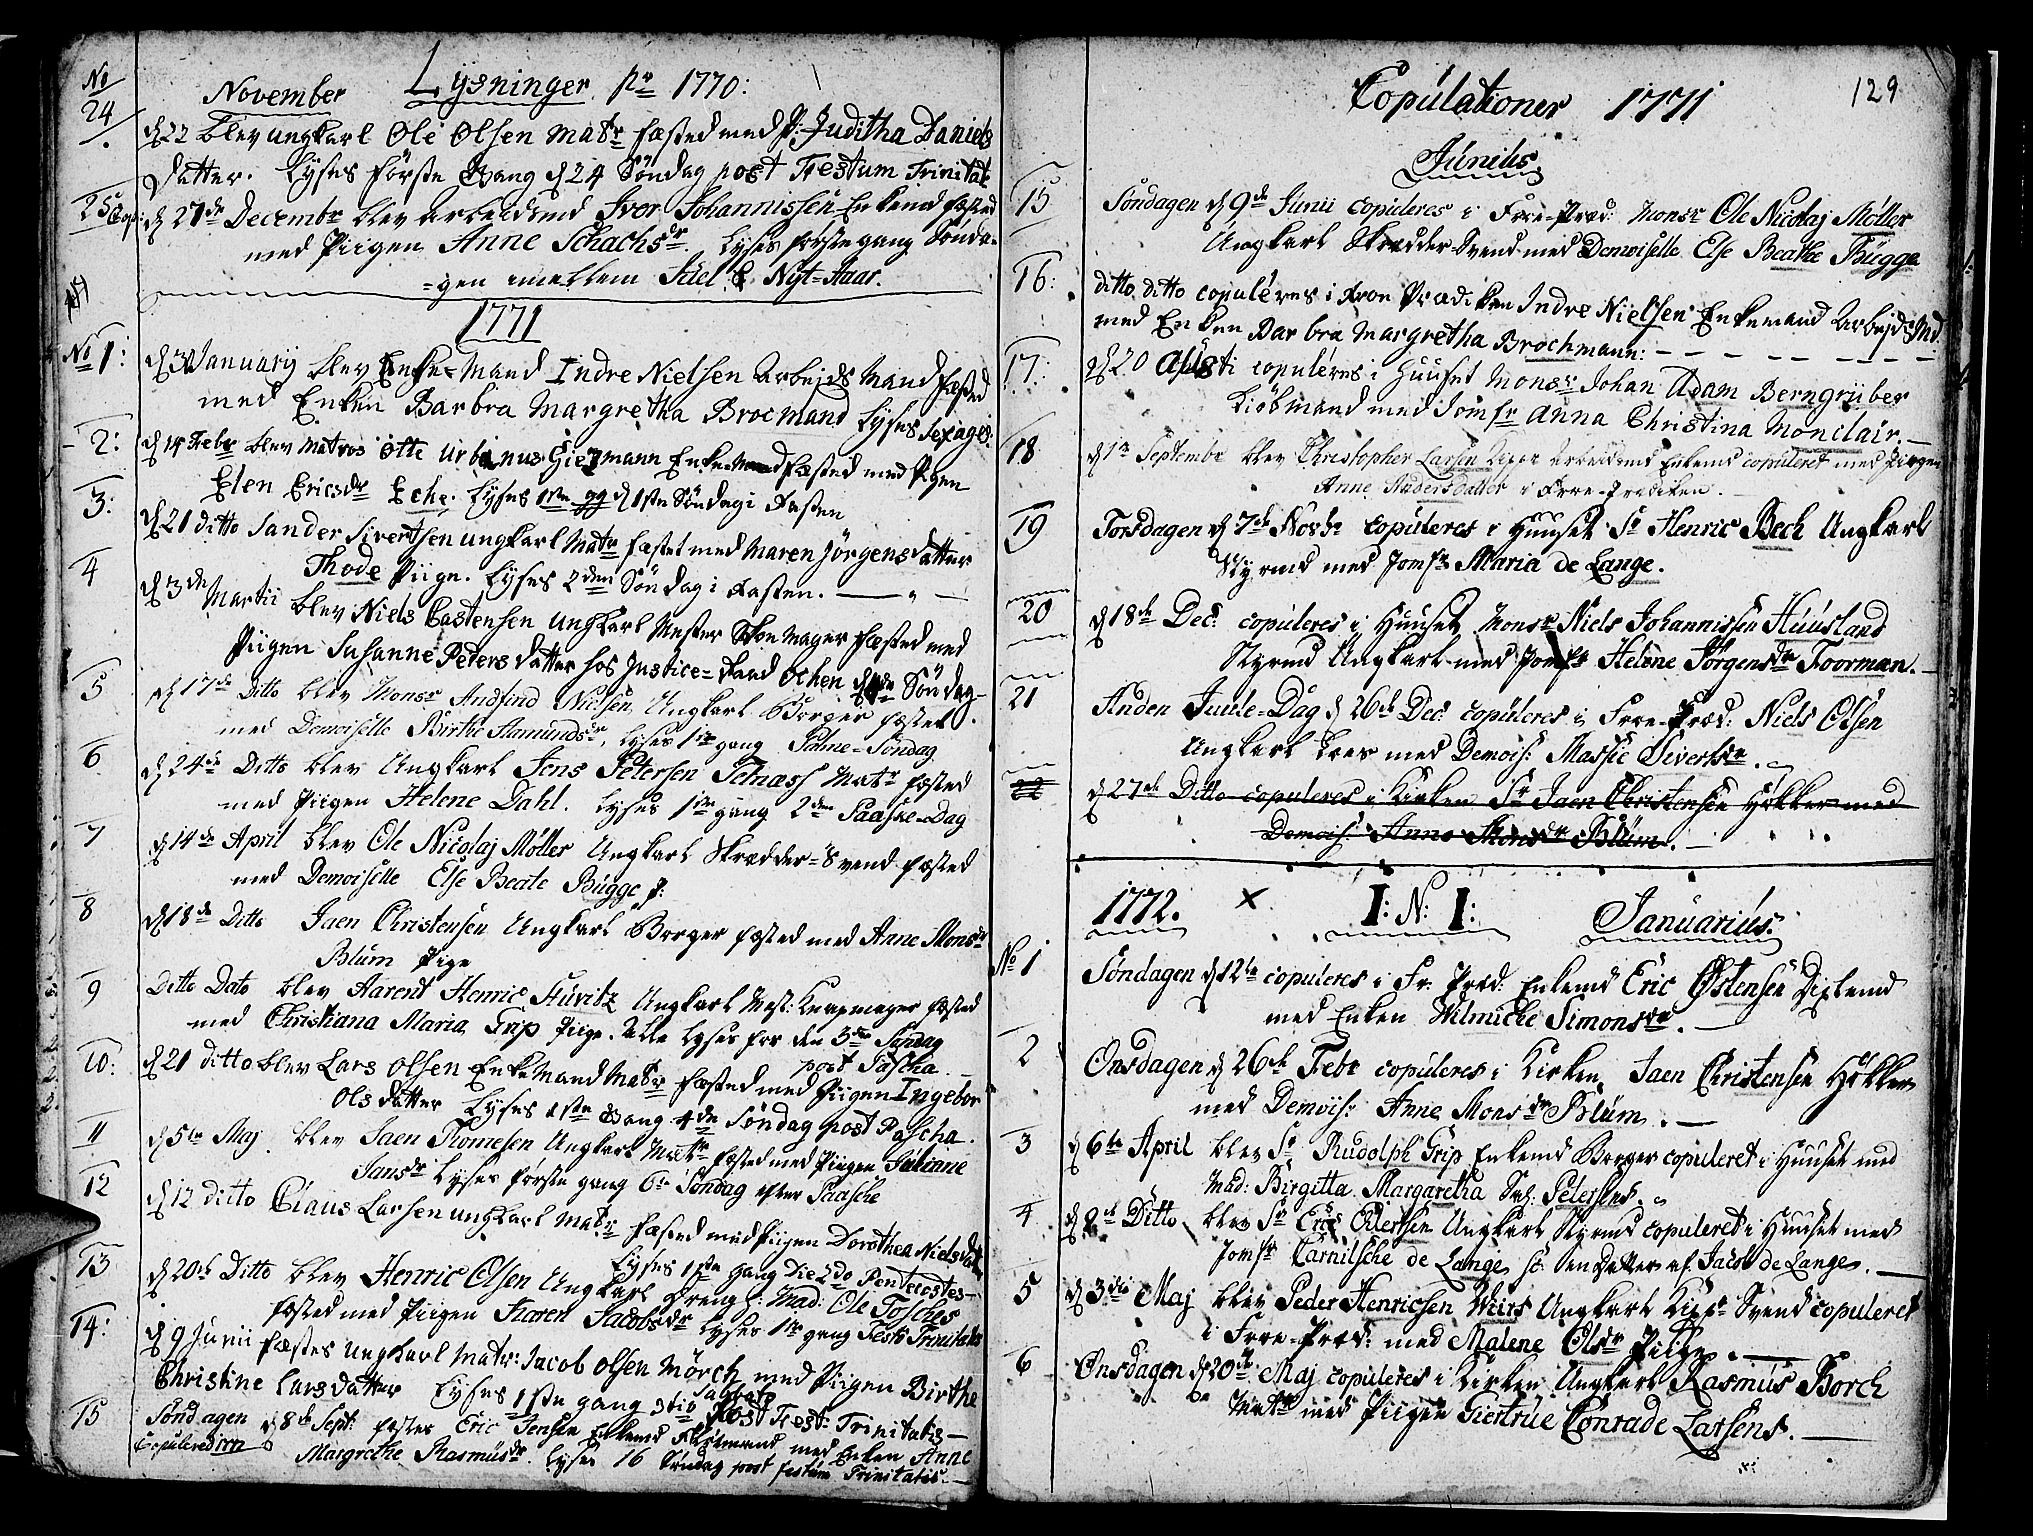 No
Lysninger pr 1770:
November
24
d 22 blev ungkarl Ole Olsen Matr fæsted med P: Juditha Daniels
datter. Lyses første Gang d 24 Søndag post Festum Trinitat
25 Cop: d 27de Decembr blev Arbeidsmd Iver Johannissen Enkemd fæsted
med Piigen Anne Schachsdr. Lyses første gang Sønda-
=gen imellem Juel & Nyt=Aar.
1771
No 1: d 3 January blev Enke=Mand Indre Nielsen Arbejds Mand fæsted
med Enken Barbra Margretha Brocmand Lyses Sexages:
2: d 14 Febr blev Matros Otte Urbanus Giezmann Enkemand fæsted med Pigen
Elen Ericsdr Eche. Lyses 1ste gg d 1ste Søndag i Fasten
3: d 21 ditto Sander Sivertsen ungkarl Matr fæstet med Maren Jörgensdatter
Thode Piige. Lyses 2den Søndag i Fasten.
4 d 3de Martii blev Niels Castensen ungkarl Mester Skomager fæsted med
Piigen Susanne Peters datter hos Justice=Raad Ochen Søndag
5 d 17de Ditto blev Monsr Andfind Nielsen Ungkarl Borger fæstet
med Demoiselle Birthe Amundsdr, lyses 1ste gang Palme-Søndag
6 d 24de Ditto blev Ungkarl Jens Petersen Matr fæsted
med Piigen Helene Dahl. Lyses 1ste gang 2den Paaske-Dag
7 d 14de April blev Ole Nicolaj Møller Ungkarl Skrædder=Svend fæsted
med Demoiselle Else Beate Bugge P:
8 d 18de Ditto Jaen Christensen Ungkarl Borger fæsted med Anne Monsdr
Blum Pige
9 Ditto Dato blev Aarent Henric Hurvitz Ungkarl Mest: Knapmager fæsted
med Christiana Maria Grip Piige. Alle lyses for den 3die Søndag
post Pascha.
10: d 21 ditto blev Lars Olsen Enkemand Matr fæsted med Piigen Ingebor
Ols datter Lyses 1ste Gang 4de Søndag post Pascha.
11 d 5te Maj blev Jaen Thomesen Ungkarl Matr fæsted med Piigen Julianne
Jansdr Lyses første gang 6te Søndag efter Paaske
12 d 12 ditto Claus Larsen ungkarl Matr fæsted med Piigen Dorothea Nielsdatt
Lyses 1ste Gang Die 2do Pentecostes
13 d 20de Ditto blev Henric Olsen Ungkarl Dreng Mad: Ole Tosches
fæsted med Piigen Karen Jacobsdr lyses 1ste gang Festi Trinitatis
14: d 9 Junii fæstes ungkarl Matr: Jacob Olsen Mörch med Piigen Birthe
Christine Larsdatter Lyses 1ste gang 3tio Post Fest: Trinitatis
15 Søndagen d 8de Sept: fæstes Eric Jensen Enkemd med Enken Anne
Copuleret Margrethe Rasmusdr. Lyses 16 Søndag post festum Trinitatis.
129
Copulationer 1771
Junius
15 Søndagen d 9de Junii copuleres i Frre-Præd: Monsr Ole Nicolaj Møller
Ungkarl Skrædder-Svend med Demoiselle Else Beathe Bugge
16: ditto ditto copuleres i Froe Prædiken Indre Nielsen Enkemand Arbejdsmd
med Enken Barbra Margretha Brochmann:
17: d 20 Augusti copuleres i Huuset Monsr Johan Adam Berngrüber
Kiöbmand med Jomfr Anna Christina Monclair.
18 d 1te Septembr blev Christopher Larsen Arbeidsmd Enkemd copuleret med Piigen
Anne Andersdatter i Frre-Prediken.
19 Torsdagen d 7de Novbr copuleres i Huuset Sr Henric Bech Ungkarl
Styrmd med Jomfr Maria de Lange.
20 d 18de Decr copuleres i Huuset Monsr Niels Johannissen Huusland
Styrmd Ungkarl med Jomfr Helene Jørgensdr Foorman.
21 Anden Juule-Dag d 26de Decr copuleres i Frre-Præd: Niels Olsen
Ungkarl Loes med Demois: Massie Sivertsdr.
22 d 27de Ditto copuleres i Kirken Sr Jaen Christensen Høkker med
Demois: Anne Monsdr Blum.
1772. x I: N: I: Januarius.
No 1 Søndagen d 12te copuleres i Fr: Præd: Enkemd Eric Østensen
med Enken Wilmicke Simonsdr.
2 Onsdagen d 26de Febr copuleres i Kirken Jaen Christensen Høkker
med Demois: Anne Monsdr Blum.
3 d 6te April blev Sr Rudolph Grip Enkemd Borger copuleret i Huuset med
Mad: Birgitta Margaretha Sal: Petersens.
4 d 8de Ditto blev Sr Eric Edersen Ungkarl Styrmd copuleret i Huuset med
Jomfr Carnilsche de Lange sc: Sen datter af Jacob de Lange.
5 d 3die Maj blev Peder Henricsen Wiirs Ungkarl Svend copuleret
i Frre-Præd: med Malene Olsdr Piige.
6 Onsdagen d 20de Maj copuleres i Kirken Ungkarl Rasmus Borch
Matr med Piigen Giertrue Conrade Larsens.